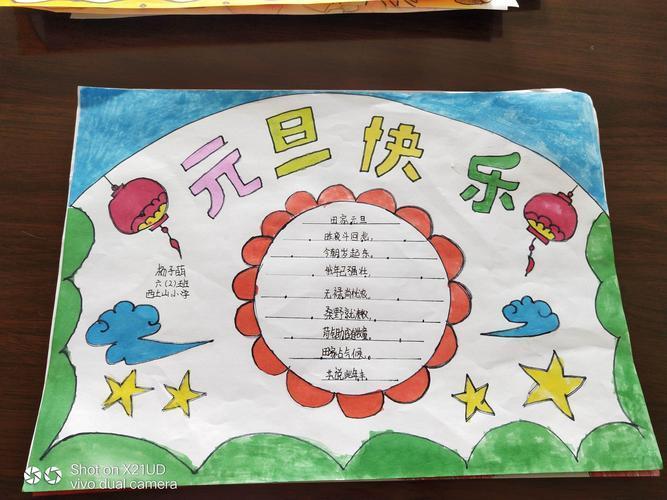 元旦快乐
田家元旦
昨夜斗回北，
今朝岁起东。
我年已强壮，
无禄尚忧农。
桑野就耕
荷锄随牧童。
田家占气候。
共说此年丰。
六(2)班
西土山小学
Shot on X21UD
vivo dual camera